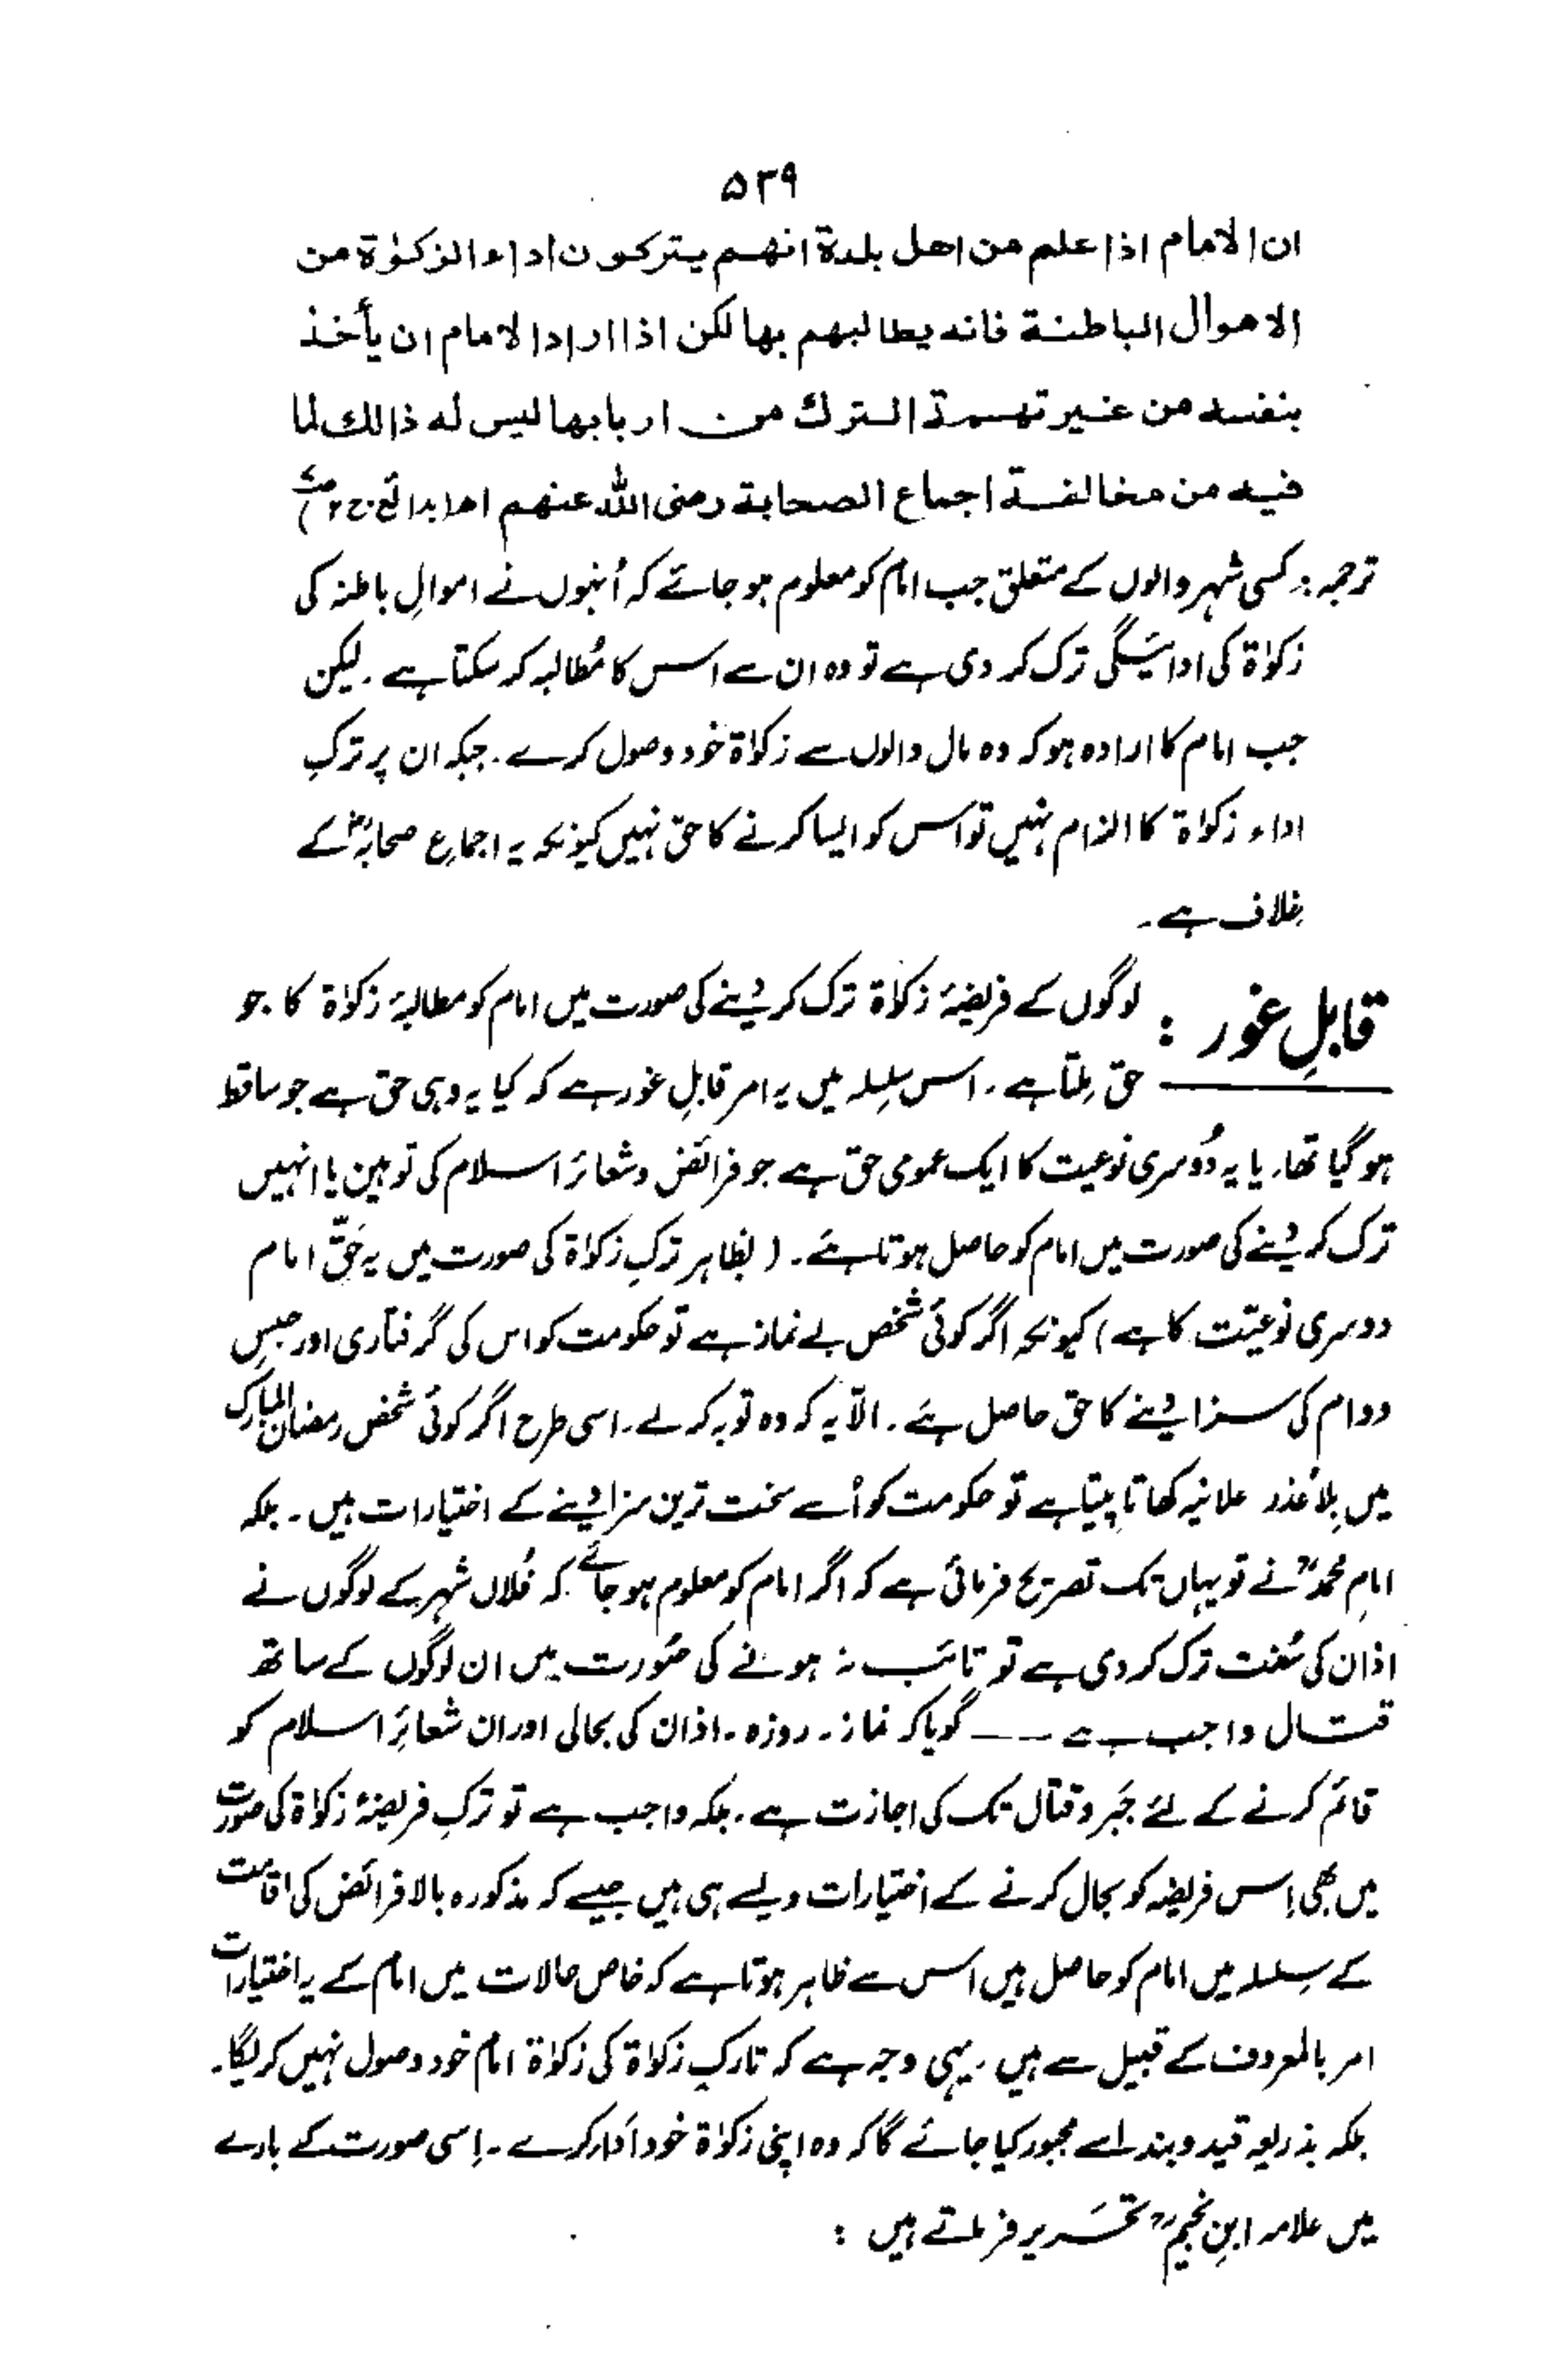 ۵۳۹
ان الامام اذا علم من اهل بلدة انهم يتركون اداء الزكوٰة من
الاموال الباطنة فانه يطالبهم بها لكن اذا اراد الامام ان يأخذ
بنفسه من غير تهمة الترك من اربابها ليس له ذالك لما
فيه من مخالفة اجماع الصحابة رضى الله عنهم اھ (بدائع ج ۲
ترجمہ : کسی شہر والوں کے متعلق جب امام کو معلوم ہو جائے کہ اُنہوں نے اموالِ باطنہ کی
زکوٰۃ کی ادائیگی ترک کر دی ہے تو وہ ان سے اس کا مُطالبہ کر سکتا ہے ۔ لیکن
جب امام کا ارادہ ہو کہ وہ مال والوں سے زکوٰۃ خود وصول کرے ۔ جبکہ ان پر ترکِ
اداء زکوٰۃ کا الزام نہیں تو اس کو ایسا کرنے کا حق نہیں کیونکہ یہ اجماعِ صحابہؓ کے
خلاف ہے ۔
قابلِ غور : لوگوں کے فریضۂ زکوٰۃ ترک کر دینے کی صورت میں امام کو مطالبۂ زکوٰۃ کا جو
حق مِلتا ہے ۔ اس سِلسلہ میں یہ امر قابلِ غور ہے کہ کیا یہ وہی حق ہے جو ساقط
ہو گیا تھا ۔ یا یہ دُوسری نوعیت کا ایک عمومی حق ہے جو فرائض و شعائر اسلام کی توہین یا انہیں
ترک کر دینے کی صورت میں امام کو حاصل ہوتا ہے ۔ (بظاہر ترکِ زکوٰۃ کی صورت میں یہ حَقّ امام
دوسری نوعیّت کا ہے) کیونکہ اگر کوئی شخص بے نماز ہے تو حکومت کو اس کی گرفتاری اور حبسِ
دوام کی سزا دینے کا حق حاصل ہے ۔ الّا یہ کہ وہ توبہ کر لے ۔ اسی طرح اگر کوئی شخص رمضان المبارک
میں بِلا عُذر علانیہ کھاتا پیتا ہے تو حکومت کو اُسے سخت ترین سزا دینے کے اختیارات ہیں ۔ بلکہ
امام محمدؒ نے تو یہاں تک تصریح فرمائی ہے کہ اگر امام کو معلوم ہو جائے کہ فُلاں شہر کے لوگوں نے
اذان کی سُنت ترک کر دی ہے تو تائب نہ ہونے کی صُورت میں ان لوگوں کے ساتھ
قتال واجب ہے ـــــ گویا کہ نماز ۔ روزہ ۔ اذان کی بحالی اور ان شعائِر اسلام کو
قائم کرنے کے لئے جَبر و قتال تک کی اجازت ہے ۔ بلکہ واجب ہے تو ترکِ فریضۂ زکوٰۃ کی صورت
میں بھی اِس فریضہ کو بحال کرنے کے اختیارات ویسے ہی ہیں جیسے کہ مذکورہ بالا فرائض کی اقامت
کے سِلسلہ میں امام کو حاصل ہیں اس سے ظاہر ہوتا ہے کہ خاص حالات میں امام کے یہ اختیارات
امر بالمعروف کے قبیل سے ہیں ۔ یہی وجہ ہے کہ تارکِ زکوٰۃ کی زکوٰۃ امام خود وصول نہیں کریگا ۔
بلکہ بذریعہ قید و بند اسے مجبور کیا جائے گا کہ وہ اپنی زکوٰۃ خود اَدا کرے ۔ اِسی صورت کے بارے
میں علامہ ابنِ نجیمؒ تحریر فرماتے ہیں :